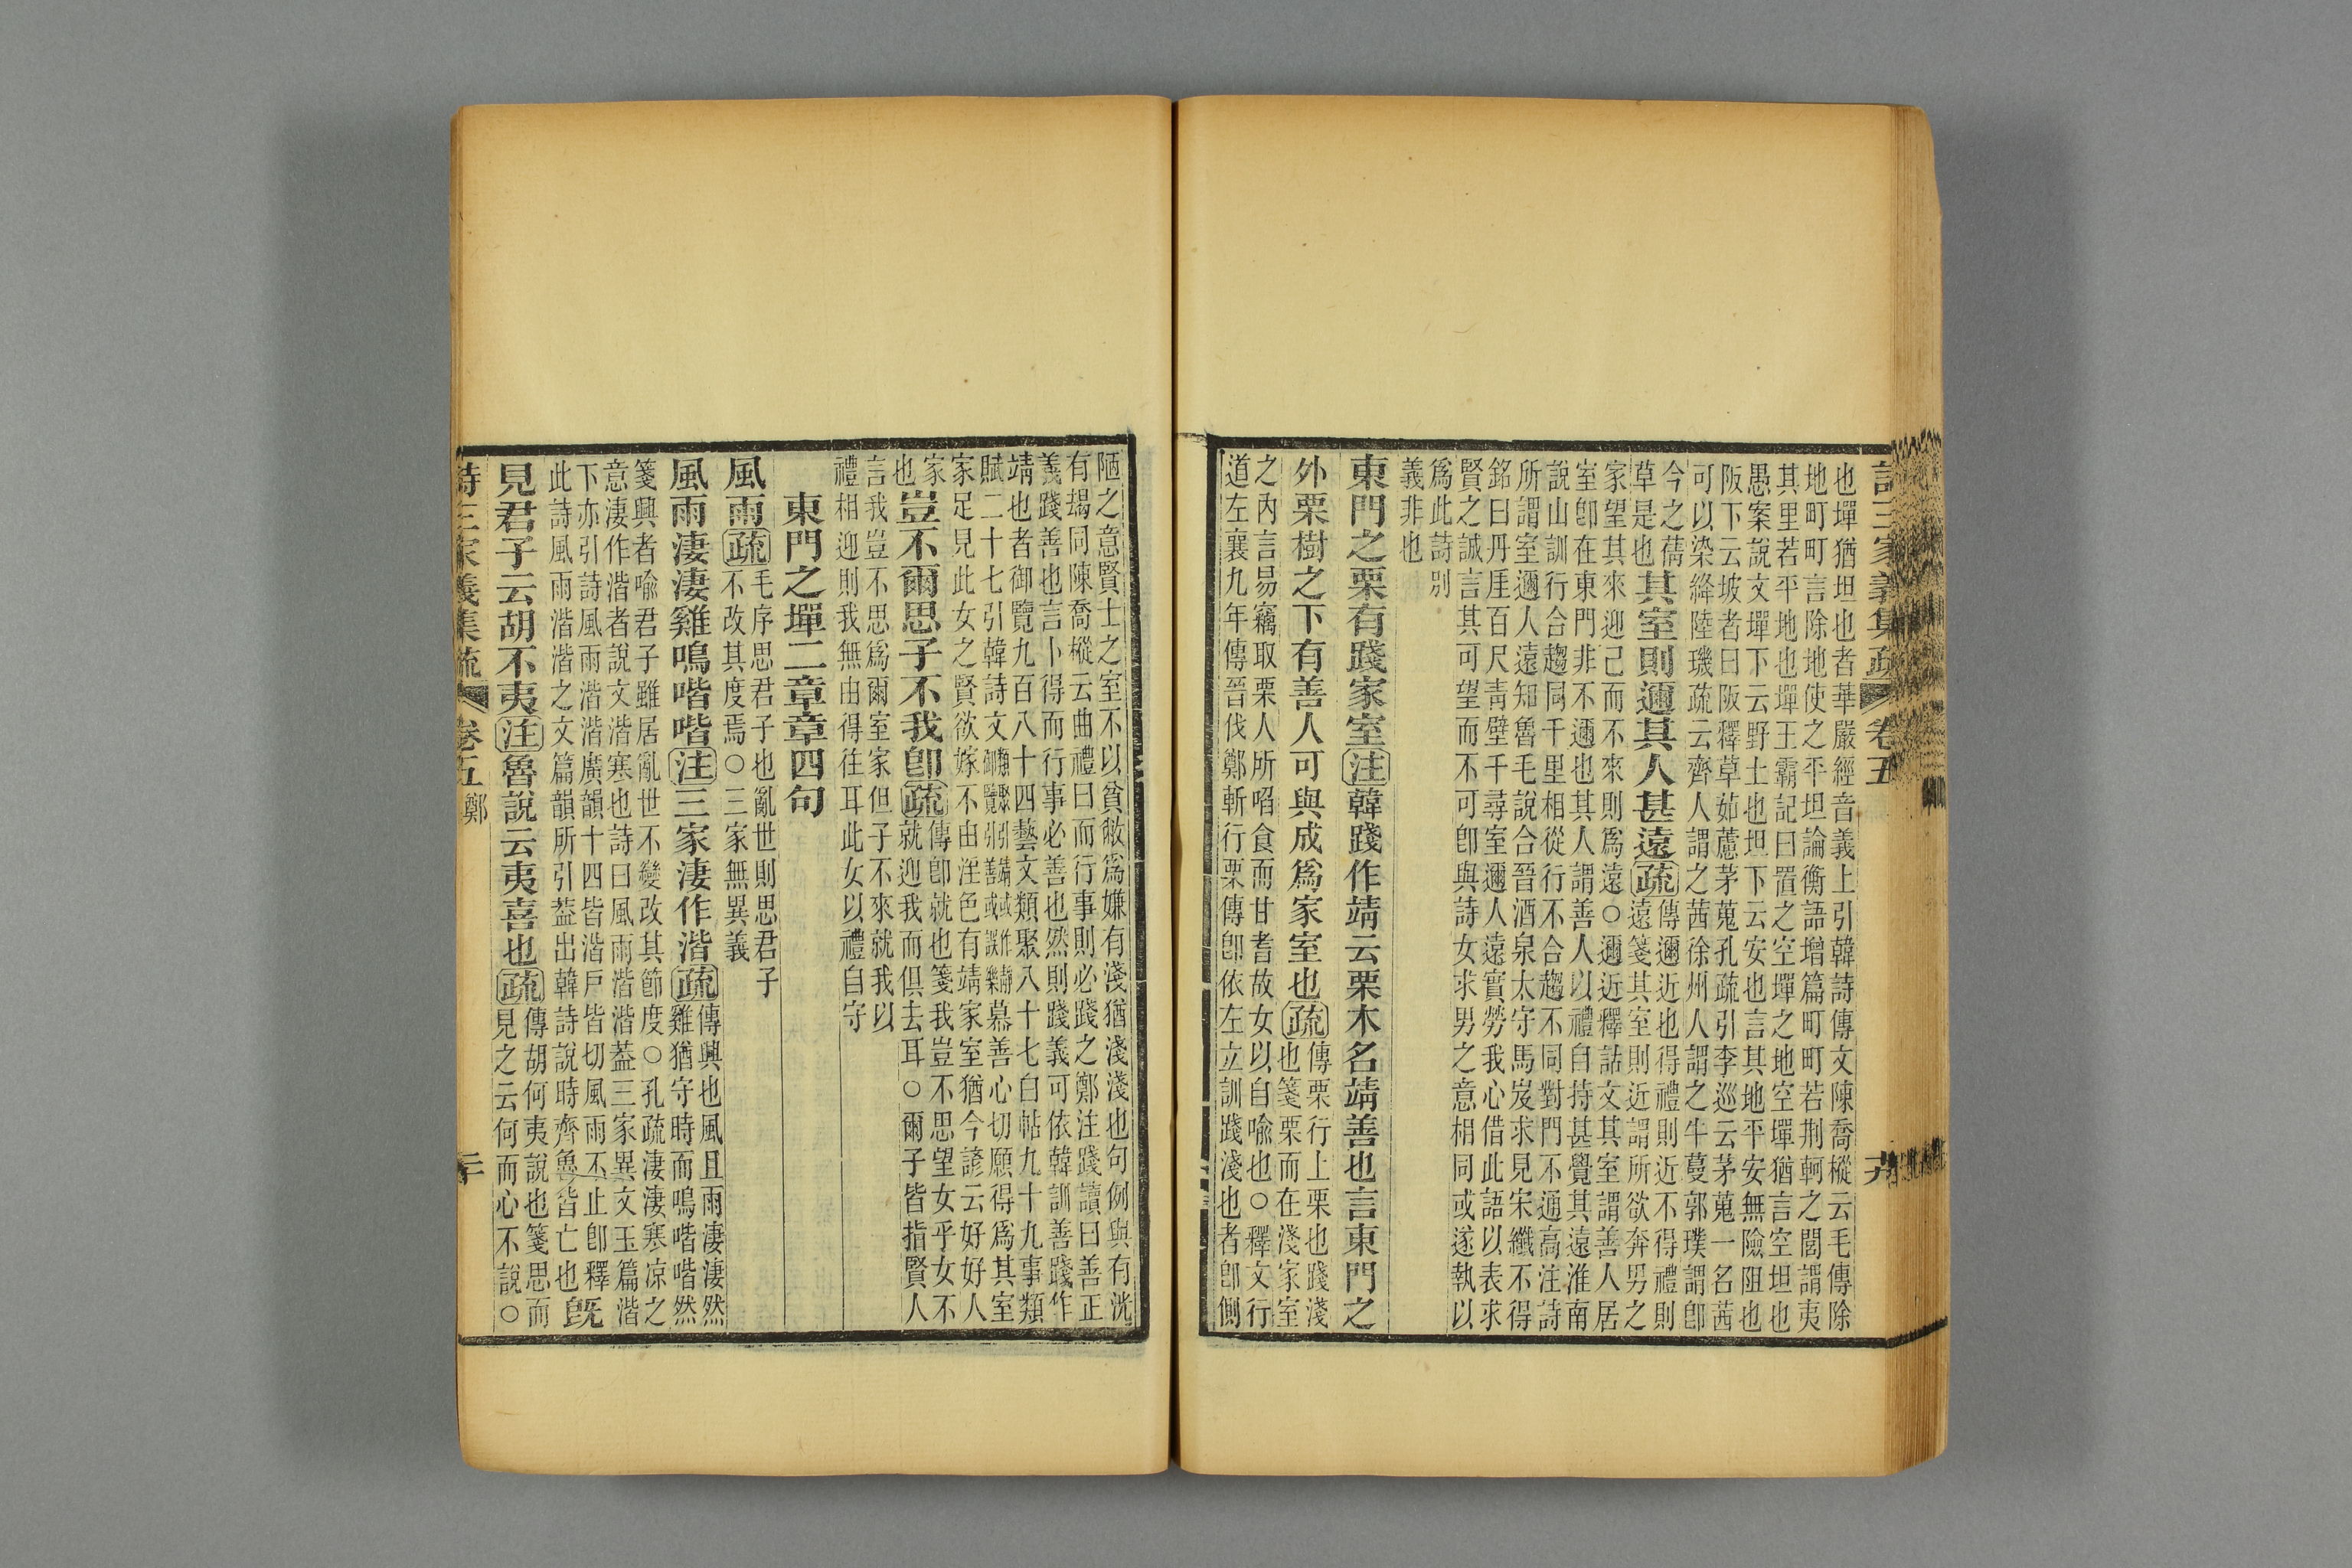 詩三家義集疏 卷五
也墠猶坦也者華嚴經音義上引韓詩傳文陳喬樅云毛傳除
地町町言除地使之平坦論衡語增篇町町若荆軻之閭謂夷
其里若平地也墠王霸記曰置之空墠之地空墠猶言空坦也
愚案說文墠下云野土也坦下云安也言其地平安無險阻也
阪下云坡者曰阪釋草茹藘茅蒐孔疏引李巡云茅蒐一名茜
可以染絳陸璣疏云齊人謂之茜徐州人謂之牛蔓郭璞謂卽
今之蒨
草是也其室則邇其人甚遠疏傳邇近也得禮則近不得禮則
遠箋其室則近謂所欲奔男之
家望其來迎己而不來則爲遠○邇近釋詁文其室謂善人居
室卽在東門非不邇也其人謂善人以禮自持甚覺其遠淮南
說山訓行合趨同千里相從行不合趨不同對門不通高注詩
所謂室邇人遠知魯毛說合晉酒泉太守馬岌求見宋纖不得
銘曰丹厓百尺靑壁千尋室邇人遠實勞我心借此語以表求
賢之誠言其可望而不可卽與詩女求男之意相同或遂執以
爲此詩別
義非也
東門之栗有踐家室注韓踐作靖云栗木名靖善也言東門之
外栗樹之下有善人可與成爲家室也疏傳栗行上栗也踐淺
也箋栗而在淺家室
之內言易竊取栗人所㗖食而甘耆故女以自喩也○釋文行
道左襄九年傳晉伐鄭斬行栗傳卽依左立訓踐淺也者卽側
陋之意賢士之室不以貧敝爲嫌有淺猶淺淺也句例與有洸
有朅同陳喬樅云曲禮曰而行事則必踐之鄭注踐讀曰善正
義踐善也言卜得而行事必善也然則踐義可依韓訓善踐作
靖也者御覽九百八十四藝文類聚八十七白帖九十九事類
賦二十七引韓詩文類聚引靖或作靜御覽引善或誤樂慕善心切願得爲其室
家足見此女之賢欲嫁不由淫色有靖家室猶今諺云好好人
家
也豈不爾思子不我卽疏傳卽就也箋我豈不思望女乎女不
就迎我而俱去耳○爾子皆指賢人
言我豈不思爲爾室家但子不來就我以
禮相迎則我無由得往耳此女以禮自守
東門之墠二章章四句
風雨疏毛序思君子也亂世則思君子
不改其度焉○三家無異義
風雨淒淒雞鳴喈喈注三家淒作湝疏傳興也風且雨淒淒然
雞猶守時而鳴喈喈然
箋興者喩君子雖居亂世不變改其節度○孔疏淒淒寒凉之
意淒作湝者說文湝寒也詩曰風雨湝湝葢三家異文玉篇湝
下亦引詩風雨湝湝廣韻十四皆湝戶皆切風雨不止卽釋
此詩風雨湝湝之文篇韻所引葢出韓詩說時齊魯皆亡也旣
見君子云胡不夷注魯說云夷喜也疏傳胡何夷說也箋思而
見之云何而心不說○
詩三家義集疏 卷五 鄭